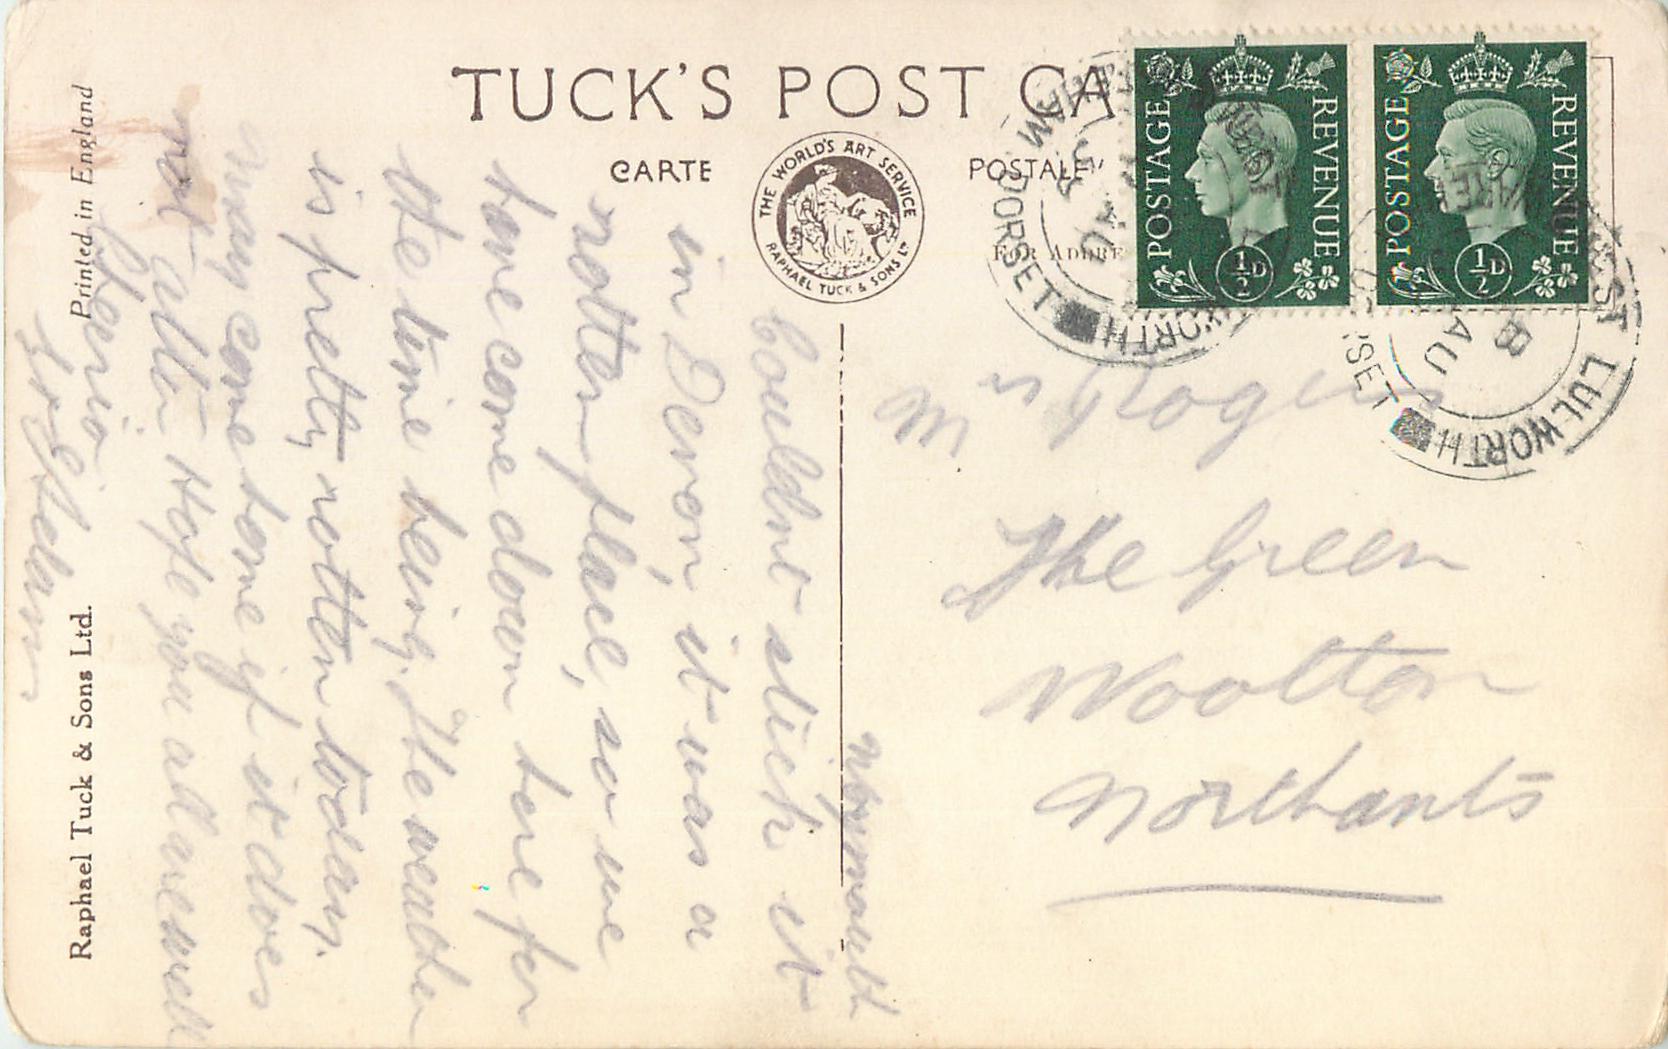 TUCK'S POST CA
CARTE POSTALE
THE WORLD'S ART SERVICE
RAPHAEL TUCK & SONS LTD
FOR ADDRE
POSTAGE REVENUE
½D
POSTAGE REVENUE
½D
WEST LULWORTH
DORSET
AU
Printed in England
Raphael Tuck & Sons Ltd.
Weymouth
Couldnt stick it
in Devon, it was a
rotten place, so we
have come down here for
the time being. The weather
is pretty rotten today.
may come home if it does
not alter. Hope you all are well
Cheerio
Mrs Rogers
The Green
Wootton
Northants